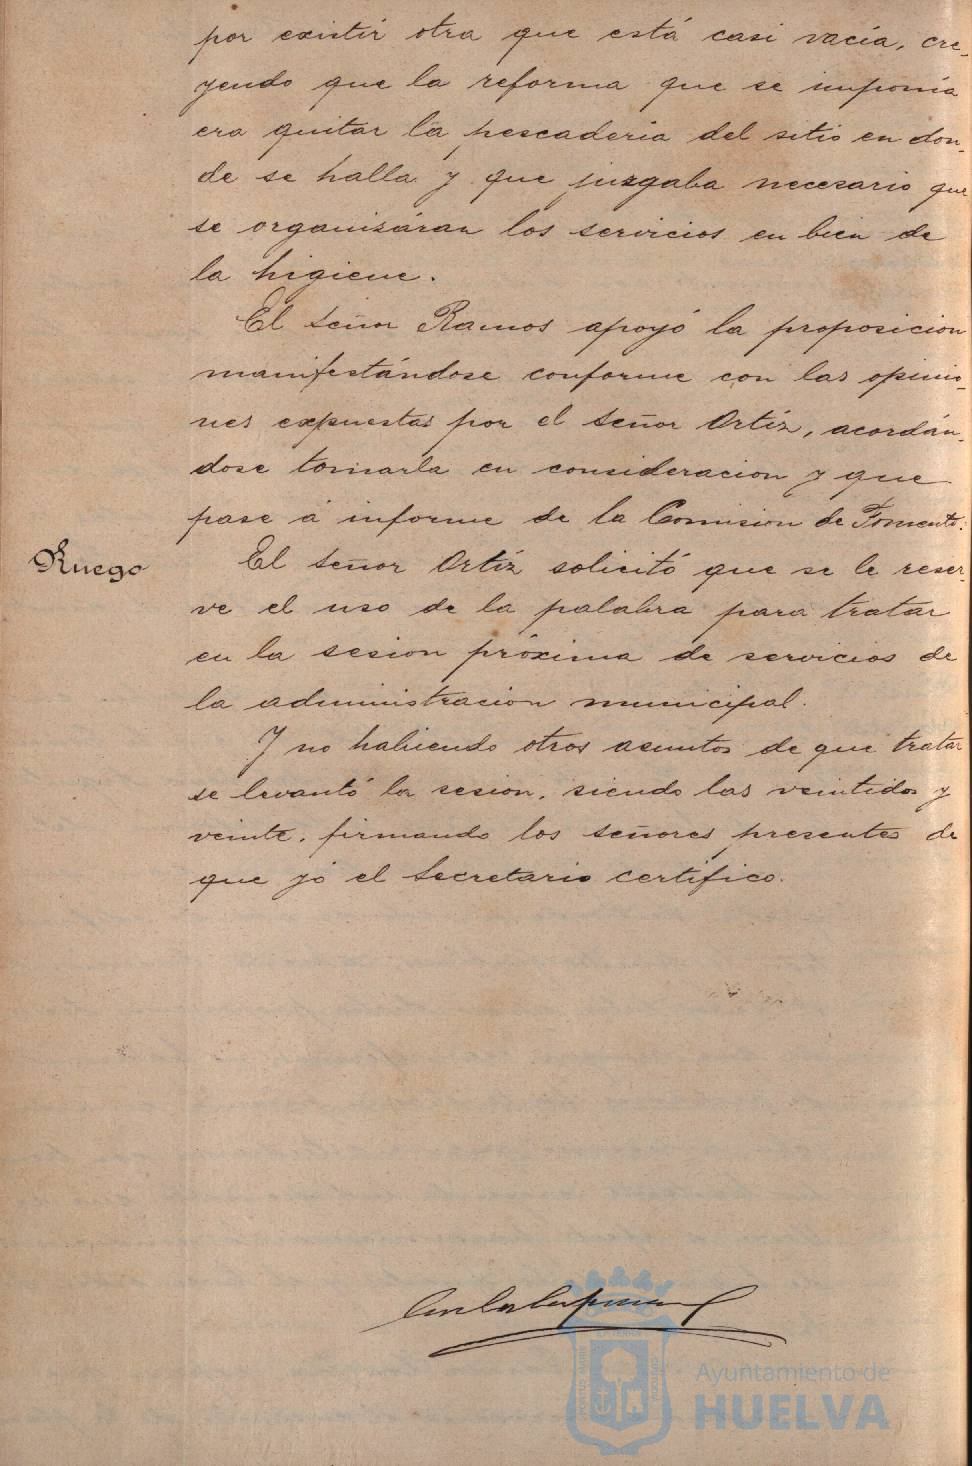 por existir otra que está casi vacía, cre-
yendo que la reforma que se imponía
era quitar la pescaderia del sitio en don-
de se halla y que juzgaba necesario que
se organizáran los servicios en bien de
la higiene.
El señor Ramos apoyó la proposicion
manifestándose conforme con las opinio-
nes expuestas por el señor Ortíz, acordán-
dose tomarla en consideracion y que
pase á informe de la Comision de Fomento.
Ruego
El señor Ortíz solicitó que se le reser-
ve el uso de la palabra para tratar
en la sesion próxima de servicios de
la administracion municipal.
Y no habiendo otros asuntos de que tratar
se levantó la sesion, siendo las veintidos y
veinte, firmando los señores presentes de
que yó el Secretario certifico.
Ayuntamiento de
HUELVA